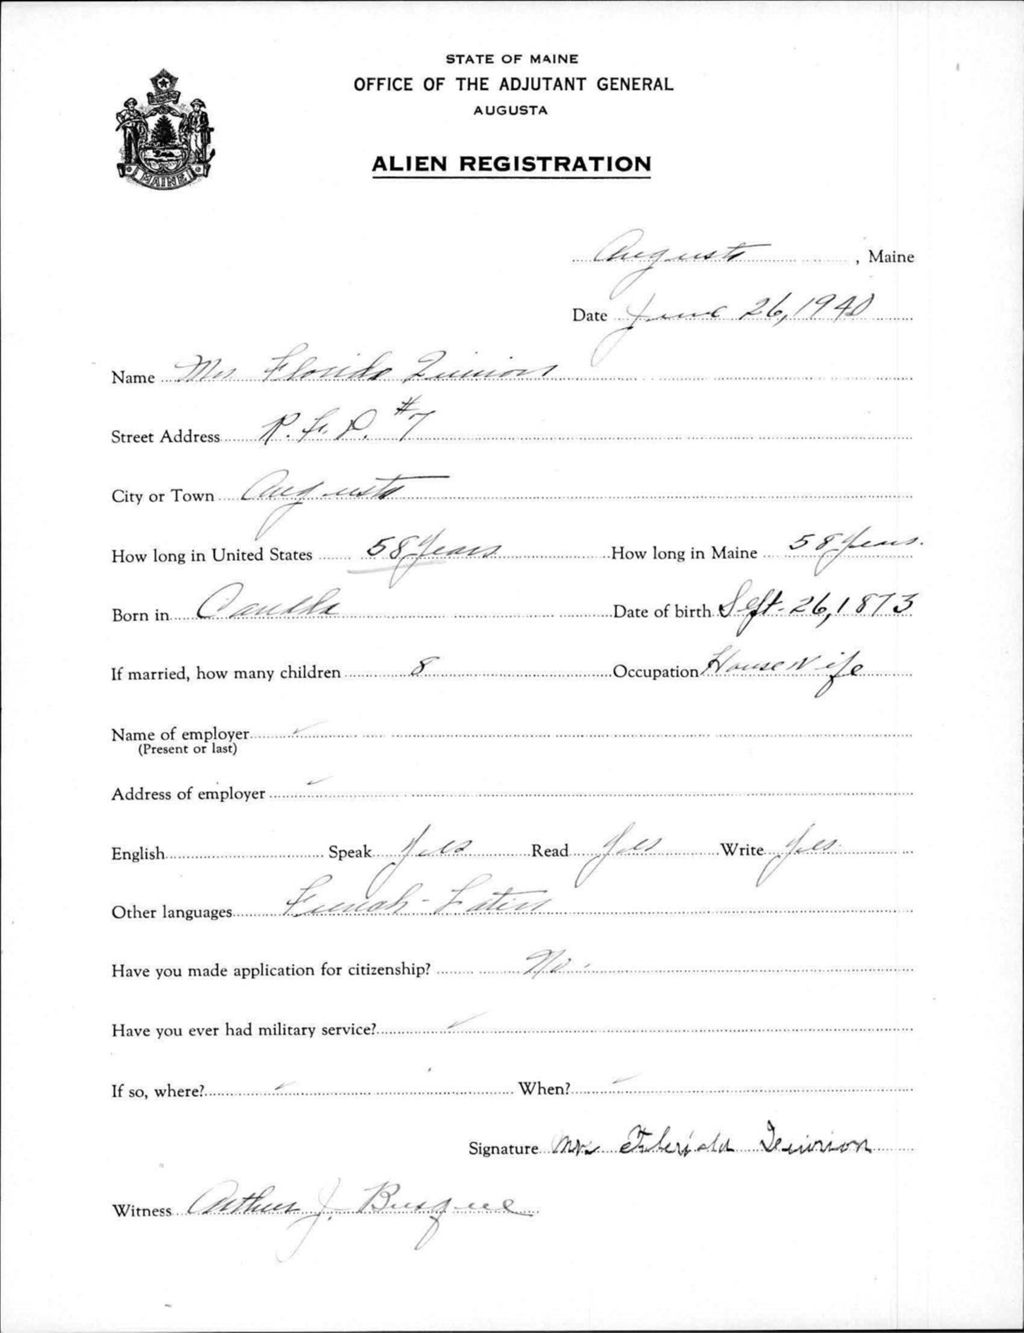 STATE OF MAINE
OFFICE OF THE ADJUTANT GENERAL
AUGUSTA
MAINE
ALIEN REGISTRATION
Augusta, Maine
Date June 26, 1940
Name Mrs Florida
Street Address R. F. D. #7
City or Town Augusta
How long in United States 58 Years How long in Maine 58 Years.
Born in Canada Date of birth Sept. 26, 1873
If married, how many children 8 Occupation House Wife
Name of employer
(Present or last)
Address of employer
English Speak Yes Read Yes Write Yes
Other languages French - Latin
Have you made application for citizenship? No.
Have you ever had military service?
If so, where? When?
Signature Mrs
Witness Arthur J. Busque